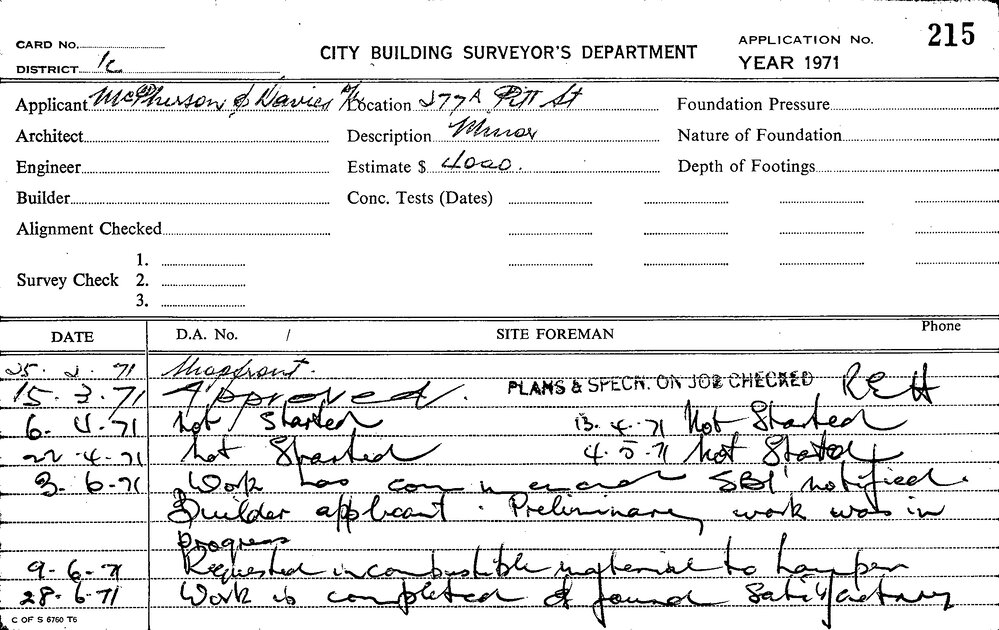 CARD No.
CITY BUILDING SURVEYOR'S DEPARTMENT
APPLICATION No. 215
DISTRICT 1c
YEAR 1971
Applicant McPherson & Davies Location 277A Pitt St Foundation Pressure
Architect Description Minor Nature of Foundation
Engineer Estimate $ 4000. Depth of Footings
Builder Conc. Tests (Dates)
Alignment Checked
1.
Survey Check 2.
3.
DATE D.A. No. / SITE FOREMAN Phone
25. 2. 71 Shopfront.
15. 3. 71 Approved. PLANS & SPECN. ON JOB CHECKED REH
6. 4. 71 Not Started 13. 4. 71 Not Started
22. 4. 71 Not Started 4. 5. 71 Not Started
3. 6. 71 Work has commenced SBI notified.
Builder applicant. Preliminary work was in
progress
9. 6. 71 Requested incombustible material to hamper
28. 6. 71 Work is completed & found Satisfactory
C OF S 6760 T6